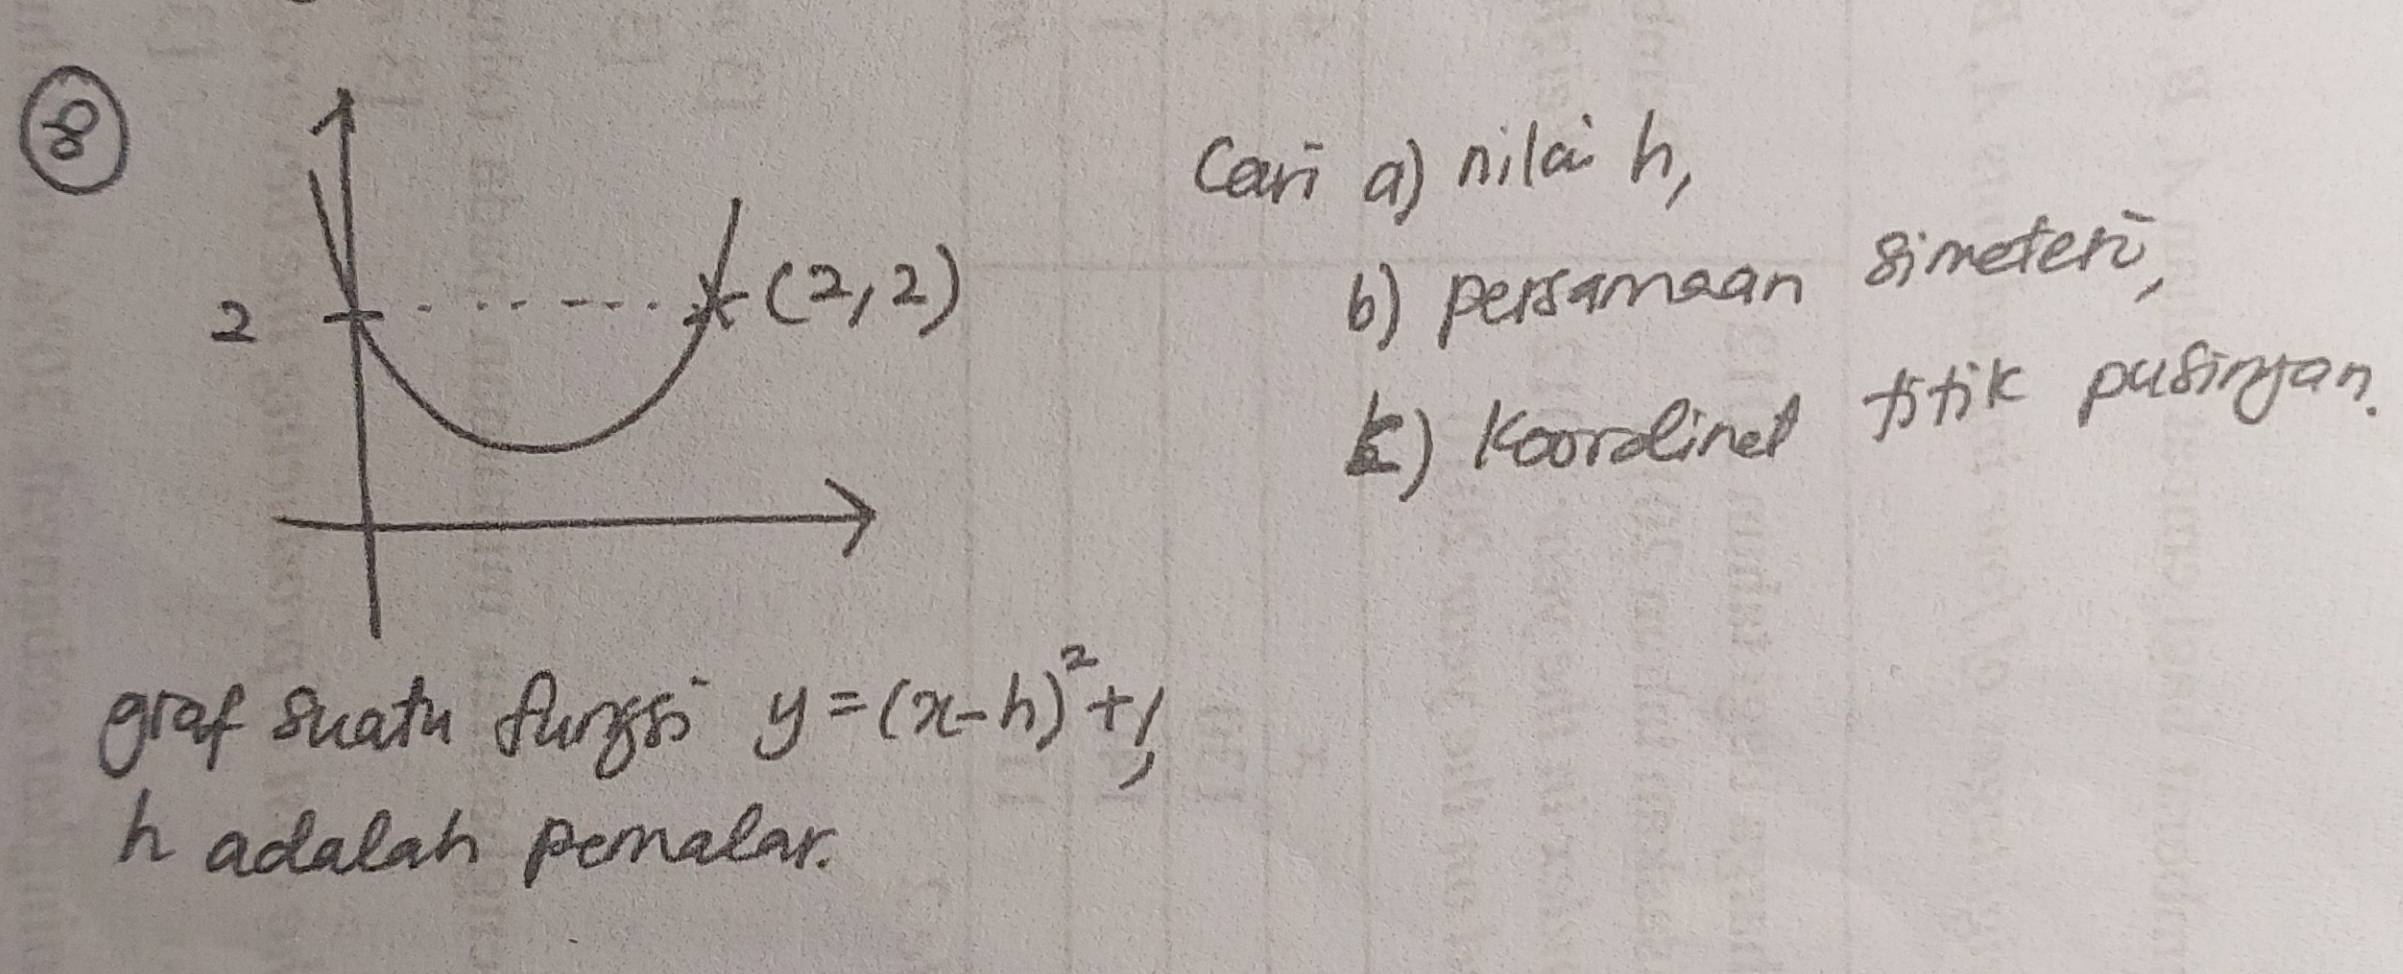 8
2
(2,2)
Cari a) nilai h,
b) persamaan simeteri,
c) Koordinat titik pusingan.
graf suatu fungsi y=(x-h)²+1,
h adalah pemalar.